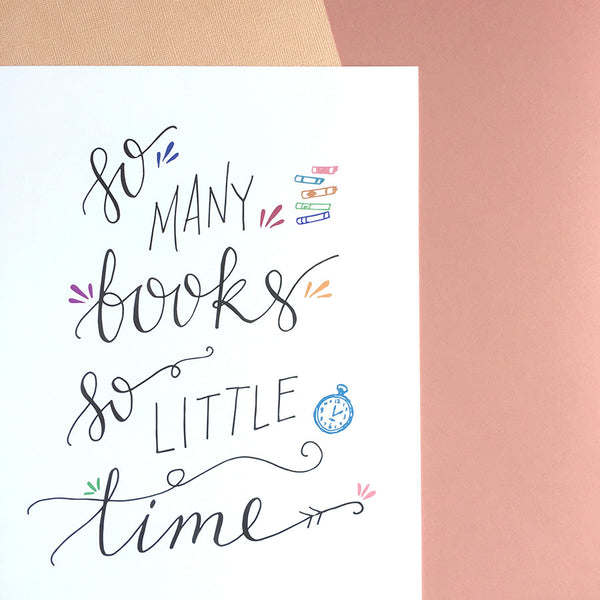 so
MANY
books
so
LITTLE
time